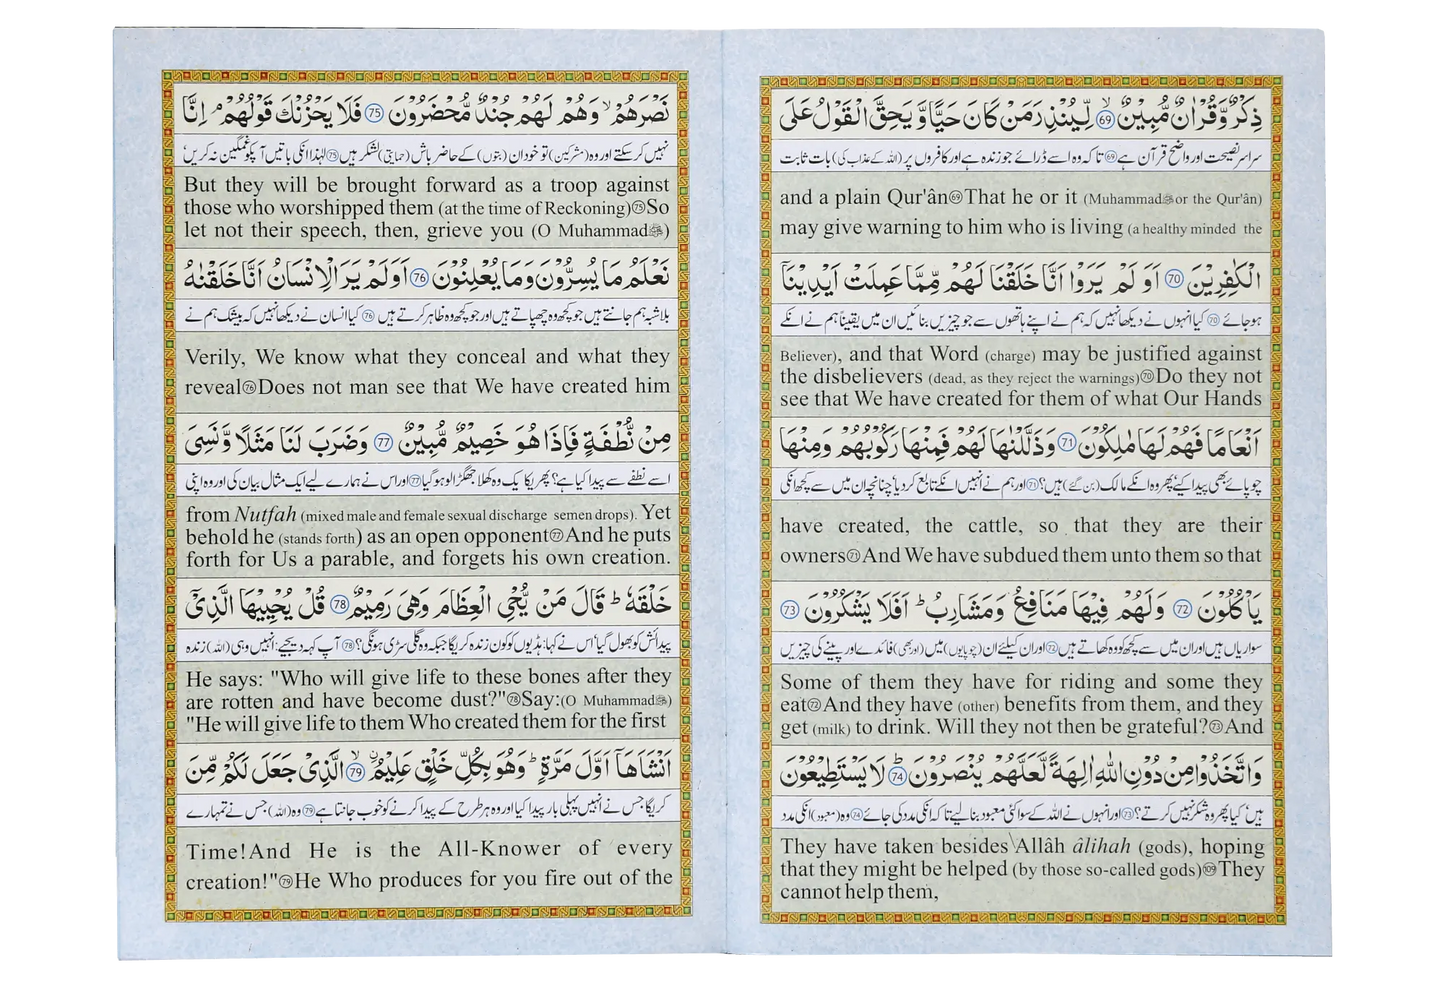 ذِكْرٌ وَّقُرْاٰنٌ مُّبِيْنٌ ۙ69 لِّيُنْذِرَ مَنْ كَانَ حَيًّا وَّ يَحِقَّ الْقَوْلُ عَلَى
سراسر نصیحت اور واضح قرآن ہے 69 تاکہ وہ اسے ڈرائے جو زندہ ہے اور کافروں پر (اللہ کے عذاب کی) بات ثابت
and a plain Qur'ân69That he or it (Muhammadﷺor the Qur'ân)
may give warning to him who is living (a healthy minded the
الْكٰفِرِيْنَ 70 اَوَ لَمْ يَرَوْا اَنَّا خَلَقْنَا لَهُمْ مِّمَّا عَمِلَتْ اَيْدِيْنَاۤ
ہو جائے 70 کیا انہوں نے دیکھا نہیں کہ ہم نے اپنے ہاتھوں سے جو چیزیں بنائیں ان میں یقیناً ہم نے انکے
Believer), and that Word (charge) may be justified against
the disbelievers (dead, as they reject the warnings)70Do they not
see that We have created for them of what Our Hands
اَنْعَامًا فَهُمْ لَهَا مٰلِكُوْنَ 71 وَذَلَّلْنٰهَا لَهُمْ فَمِنْهَا رَكُوْبُهُمْ وَمِنْهَا
چوپائے بھی پیدا کیے؟ پھر وہ انکے مالک (بن گئے) ہیں؟ 71 اور ہم نے انہیں انکے تابع کر دیا چنانچہ ان میں سے کچھ انکی
have created, the cattle, so that they are their
owners71And We have subdued them unto them so that
يَاْكُلُوْنَ 72 وَلَهُمْ فِيْهَا مَنَافِعُ وَمَشَارِبُ ؕ اَفَلَا يَشْكُرُوْنَ 73
سواریاں ہیں اور ان میں سے کچھ کو وہ کھاتے ہیں 72 اور ان کیلئے ان (چوپایوں) میں (اور بھی) فائدے اور پینے کی چیزیں
Some of them they have for riding and some they
eat72And they have (other) benefits from them, and they
get (milk) to drink. Will they not then be grateful?73And
وَاتَّخَذُوْا مِنْ دُوْنِ اللّٰهِ اٰلِهَةً لَّعَلَّهُمْ يُنْصَرُوْنَ ؕ74 لَا يَسْتَطِيْعُوْنَ
ہیں' کیا پھر وہ شکر نہیں کرتے؟ 73 اور انہوں نے اللہ کے سوا کئی معبود بنا لیے تاکہ انکی مدد کی جائے 74 وہ (معبود) انکی مدد
They have taken besides Allâh âlihah (gods), hoping
that they might be helped (by those so-called gods)109They
cannot help them,
نَصْرَهُمْ ۙ وَهُمْ لَهُمْ جُنْدٌ مُّحْضَرُوْنَ 75 فَلَا يَحْزُنْكَ قَوْلُهُمْ ۘ اِنَّا
نہیں کر سکتے اور وہ (مشرکین) تو خود ان (بتوں) کے حاضر باش (حمایتی) لشکر ہیں 75 لہٰذا انکی باتیں آپکو غمگین نہ کریں'
But they will be brought forward as a troop against
those who worshipped them (at the time of Reckoning)75So
let not their speech, then, grieve you (O Muhammadﷺ)
نَعْلَمُ مَا يُسِرُّوْنَ وَمَا يُعْلِنُوْنَ 76 اَوَلَمْ يَرَ الْاِنْسَانُ اَنَّا خَلَقْنٰهُ
بلاشبہ ہم جانتے ہیں جو کچھ وہ چھپاتے ہیں اور جو کچھ وہ ظاہر کرتے ہیں 76 کیا انسان نے دیکھا نہیں کہ بیشک ہم نے
Verily, We know what they conceal and what they
reveal76Does not man see that We have created him
مِنْ نُّطْفَةٍ فَاِذَا هُوَ خَصِيْمٌ مُّبِيْنٌ 77 وَضَرَبَ لَنَا مَثَلًا وَّنَسِىَ
اسے نطفے سے پیدا کیا ہے؟ پھر یکایک وہ کھلا جھگڑالو ہو گیا 77 اور اس نے ہمارے لیے ایک مثال بیان کی اور وہ اپنی
from Nutfah (mixed male and female sexual discharge semen drops). Yet
behold he (stands forth) as an open opponent77And he puts
forth for Us a parable, and forgets his own creation.
خَلْقَهٗ ؕ قَالَ مَنْ يُّحْىِ الْعِظَامَ وَهِىَ رَمِيْمٌ 78 قُلْ يُحْيِيْهَا الَّذِىْۤ
پیدائش کو بھول گیا' اس نے کہا: ہڈیوں کو کون زندہ کریگا جبکہ وہ گلی سڑی ہونگی؟ 78 آپ کہہ دیجیے: انہیں وہی (اللہ) زندہ
He says: "Who will give life to these bones after they
are rotten and have become dust?"78Say:(O Muhammadﷺ)
"He will give life to them Who created them for the first
اَنْشَاَهَاۤ اَوَّلَ مَرَّةٍ ؕ وَهُوَ بِكُلِّ خَلْقٍ عَلِيْمُ ۨۙ79 الَّذِىْ جَعَلَ لَكُمْ مِّنَ
کریگا جس نے انہیں پہلی بار پیدا کیا اور وہ ہر طرح کے پیدا کرنے کو خوب جانتا ہے 79 وہ (اللہ) جس نے تمہارے
Time!And He is the All-Knower of every
creation!"79He Who produces for you fire out of the